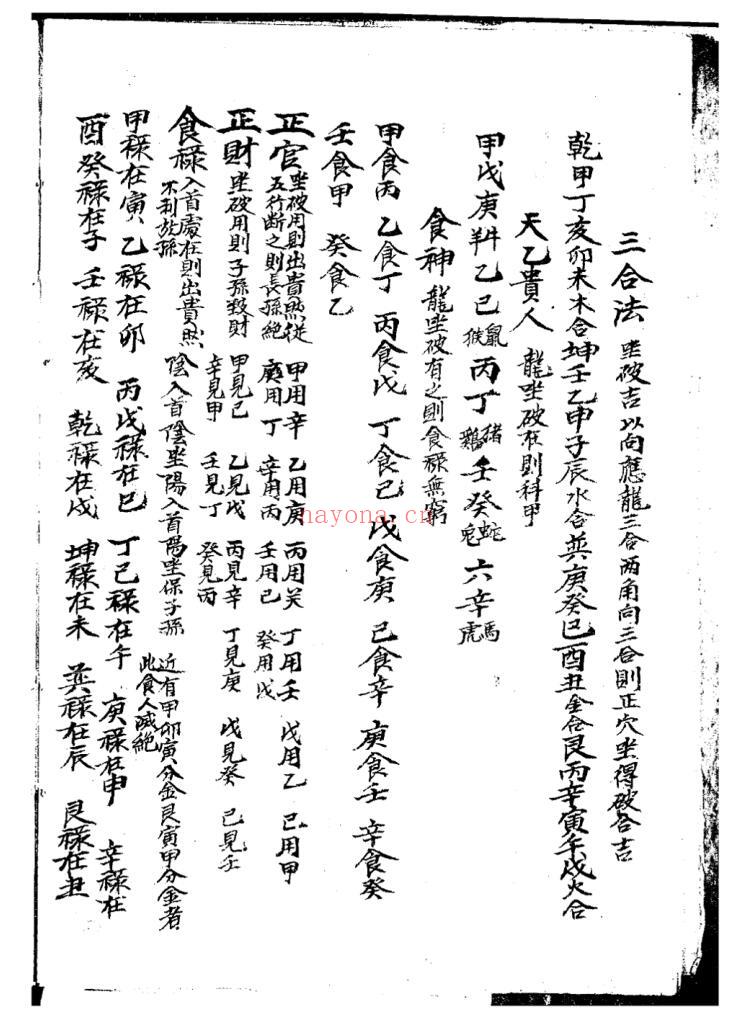 三合法 坐破吉以向應龍三合两角向三合則正穴坐得破合吉
乾甲丁亥卯未木合坤壬乙申子辰水合巽庚癸巳酉丑金合艮丙辛寅午戌火合
天乙貴人 龍坐破在則科甲
甲戊庚牛羊乙己鼠猴丙丁猪鷄壬癸蛇兎六辛馬虎
食神 龍坐破有之則食禄無窮
甲食丙 乙食丁 丙食戊 丁食己 戊食庚 己食辛 庚食壬 辛食癸
壬食甲 癸食乙
正官 坐破用則出貴然從五行断之則長孫絶 甲用辛 乙用庚 丙用癸 丁用壬 戊用乙 己用甲 庚用丁 辛用丙 壬用己 癸用戊
正財 坐破用則子孫發財 甲見己 乙見戊 丙見辛 丁見庚 戊見癸 己見壬 辛見甲 壬見丁 癸見丙
食禄 入首處在則出貴然不利於孫 陰入首陰坐陽入首陽坐保子孫 近有甲卯寅分金艮寅甲分金者此食人滅絶
甲禄在寅 乙禄在卯 丙戊禄在巳 丁己禄在午 庚禄在申 辛禄在
酉癸禄在子 壬禄在亥 乾禄在戌 坤禄在未 巽禄在辰 艮禄在丑
hayona.cn